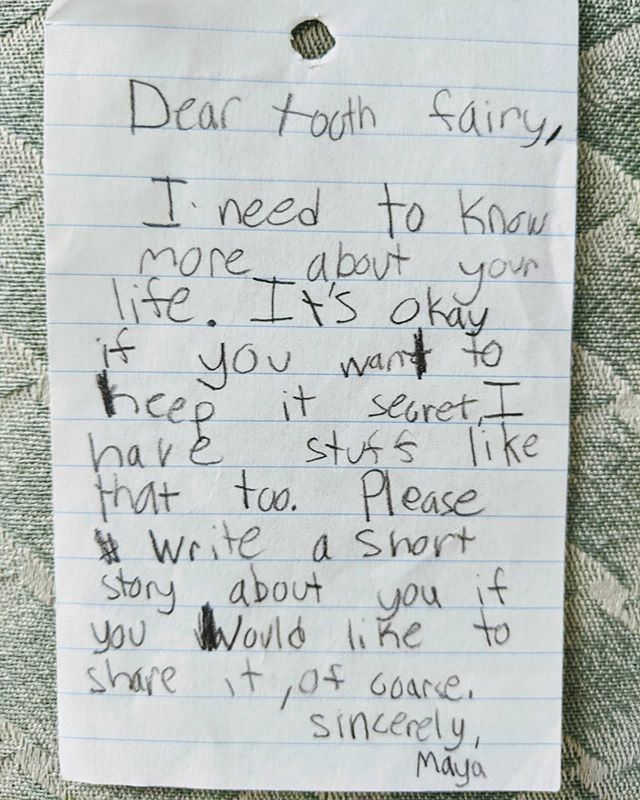 Dear tooth fairy,
I need to know
more about your
life. It's okay
if you want to
keep it secret, I
have stuff like
that too. Please
write a short
story about you if
you would like to
share it, of coarse.
sincerely,
Maya